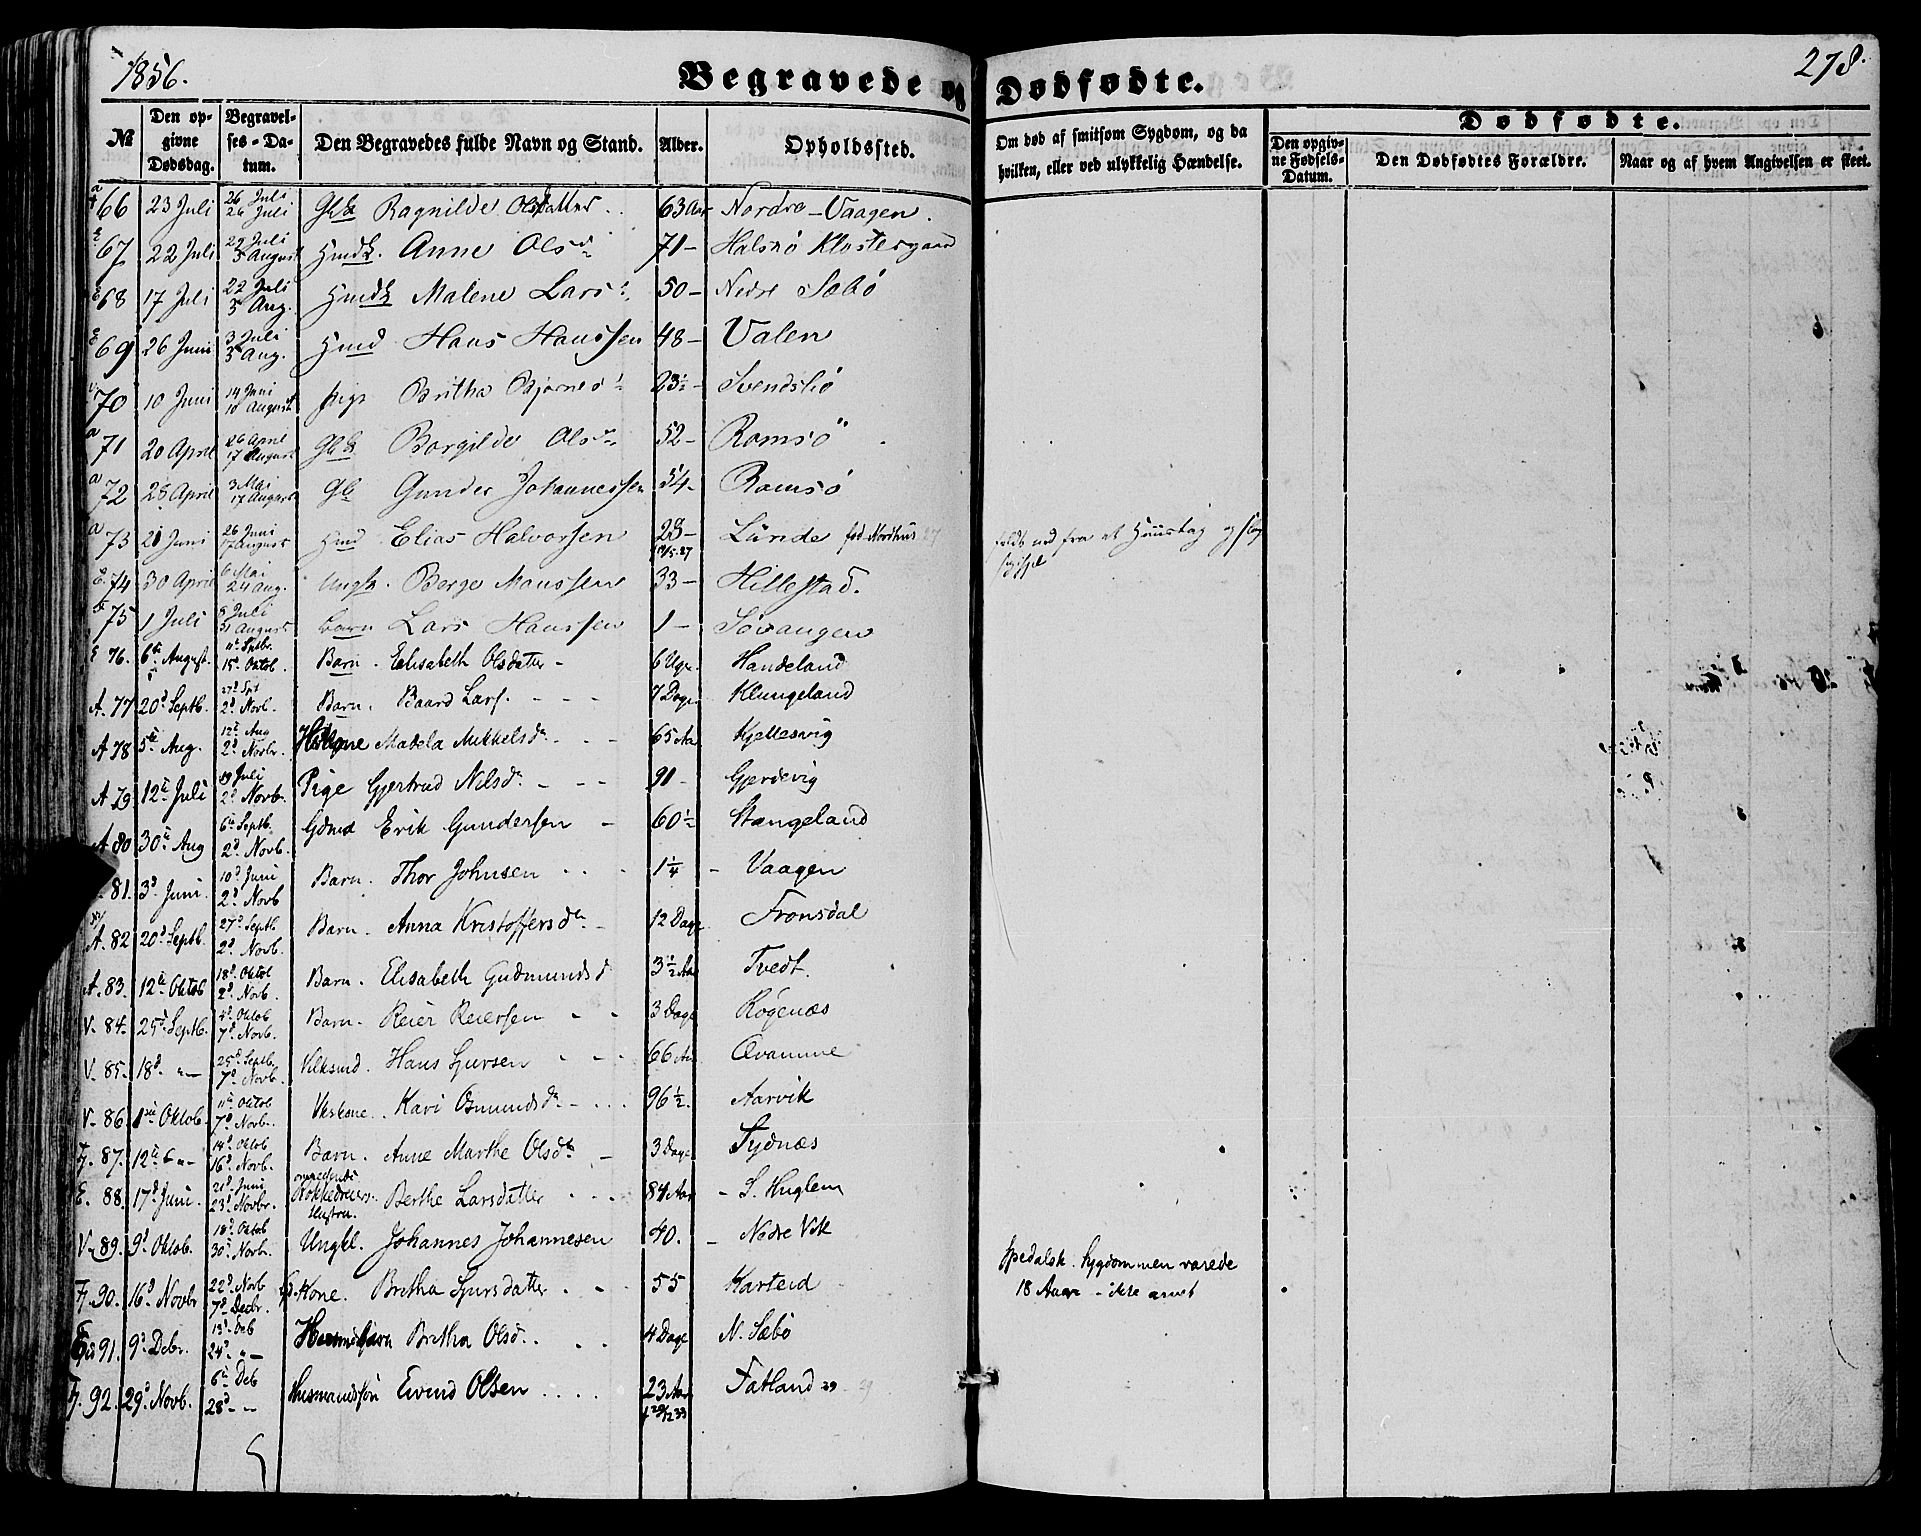 1856.
Begravede og Dødfødte.
278.
№
Den opgivne Dødsdag.
Begravelses-Datum.
Den Begravedes fulde Navn og Stand.
Alder.
Opholdssted.
Om død af smitsom Sygdom, og da hvilken, eller ved ulykkelig Hændelse.
Dødfødte.
Den opgivne Fødsels-Datum.
Den Dødfødtes Forældre.
Naar og af hvem Angivelsen er skeet.
a 66 23 Juli 26 Juli 26 Juli Ragnilde Olsdatter 63 Aar Nordre-Vaagen.
67 22 Juli 5 August Anne Olsd 71- Halsnø Klostergaard
68 17 Juli 22 Juli 3 Aug. Malene Larsd 50- Nedre Sæbø
69 26 Juni 3 Juli 3 Aug. Hmd Hans Hanssen 48- Valen
70 10 Juni 14 Juni 10 August pige Britha Bjørnsd 23½- Svendsbø
a 71 20 April 26 April 17 August Borgilde Olsd 52- Romsø
a 72 28 April 3 Mai 17 August Gb Gunder Johannessen 54- Romsø
a 73 21 Juni 26 Juni 17 August Hmd Elias Halvorsen 28- Lunde fød Nordhus 27 faldt ned fra et Huustag og slog
74 30 April 6 Mai 24 Aug. Ungk. Berge Monssen 33- Hillestad.
75 1 Juli 8 Juli 31 August barn Lars Hanssen 1- Søvangen
E 76. 6te August. 11te Septbr. 15. Oktob. Barn. Elisabeth Olsdatter - 6 Uger. Handeland
A. 77 20d Septb. 27d Spt 2d Novb. Barn. Baard Lars. - - - 7 Dage Klungeland
A 78 5te Aug. 12te Aug 2d Novbr. Madela Mikkelsdr - - - 65 Aar Kjellesvig
A 79 12te Juli 19 Juli 2d Novb. Pige Gjertrud Nilsdr - - - 91- Gjerdevig
A 80 30te Aug 6te Septb. 2d Novb. Gdmd Erik Gundersen - 60½ Stangeland
81. 3d Juni. 10d Juni 2d Novb Barn. Thor Johnsen 1¼ - Vaagen
A. 82 20d Septb. 27d Septb 2d Novb. Barn. Anna Kristoffersdtr - 12 Dage Fronsdal
A. 83. 12te Oktob 18d Oktob 2d Novb. Barn. Elisabeth Gudmundsd 3½ Aar Tvedt.
V. 84. 25d Septb. 4d Oktob 7d Novb. Barn. Reier Reiersen - - 3 Dage Røgenæs
V. 85. 18d -"- 25d Septb 7d Novb. Hans Sjursen - - - 66 Aar Qvamme
V. 86 1ste Oktob. 11te Oktob 7d Novb. Kari Osmundsdr - 96½. Aarvik
F. 87. 12te -"- 14d Oktob 16d Novb. Barn. Anne Marthe Olsdtr - 3 Dage Sydnæs
E. 88. 17d Juni. 21d Juni 23d Novbr. Berthe Larsdatter 84 Aar - S. Huglen
V. 89. 9d Oktob. 18d Oktob 30d Novb. Ungkl. Johannes Johannesen 40. - Nedre Vik
F. 90. 16d Novbr 22d Novb 7d Decbr. Kone. Britha Sjursdatter 55 Karteid Spedalsk. Sygdommen varede
18 Aar - ikke arvet
91. 9d Debr. 13d Deb 24d -"- Britha Olsd. 4 Dage N. Sæbø
F. 92. 29d Novb. 6te Deb 28d -"- Husmandssøn Eivind Olsen 23 Aar Fatland 29